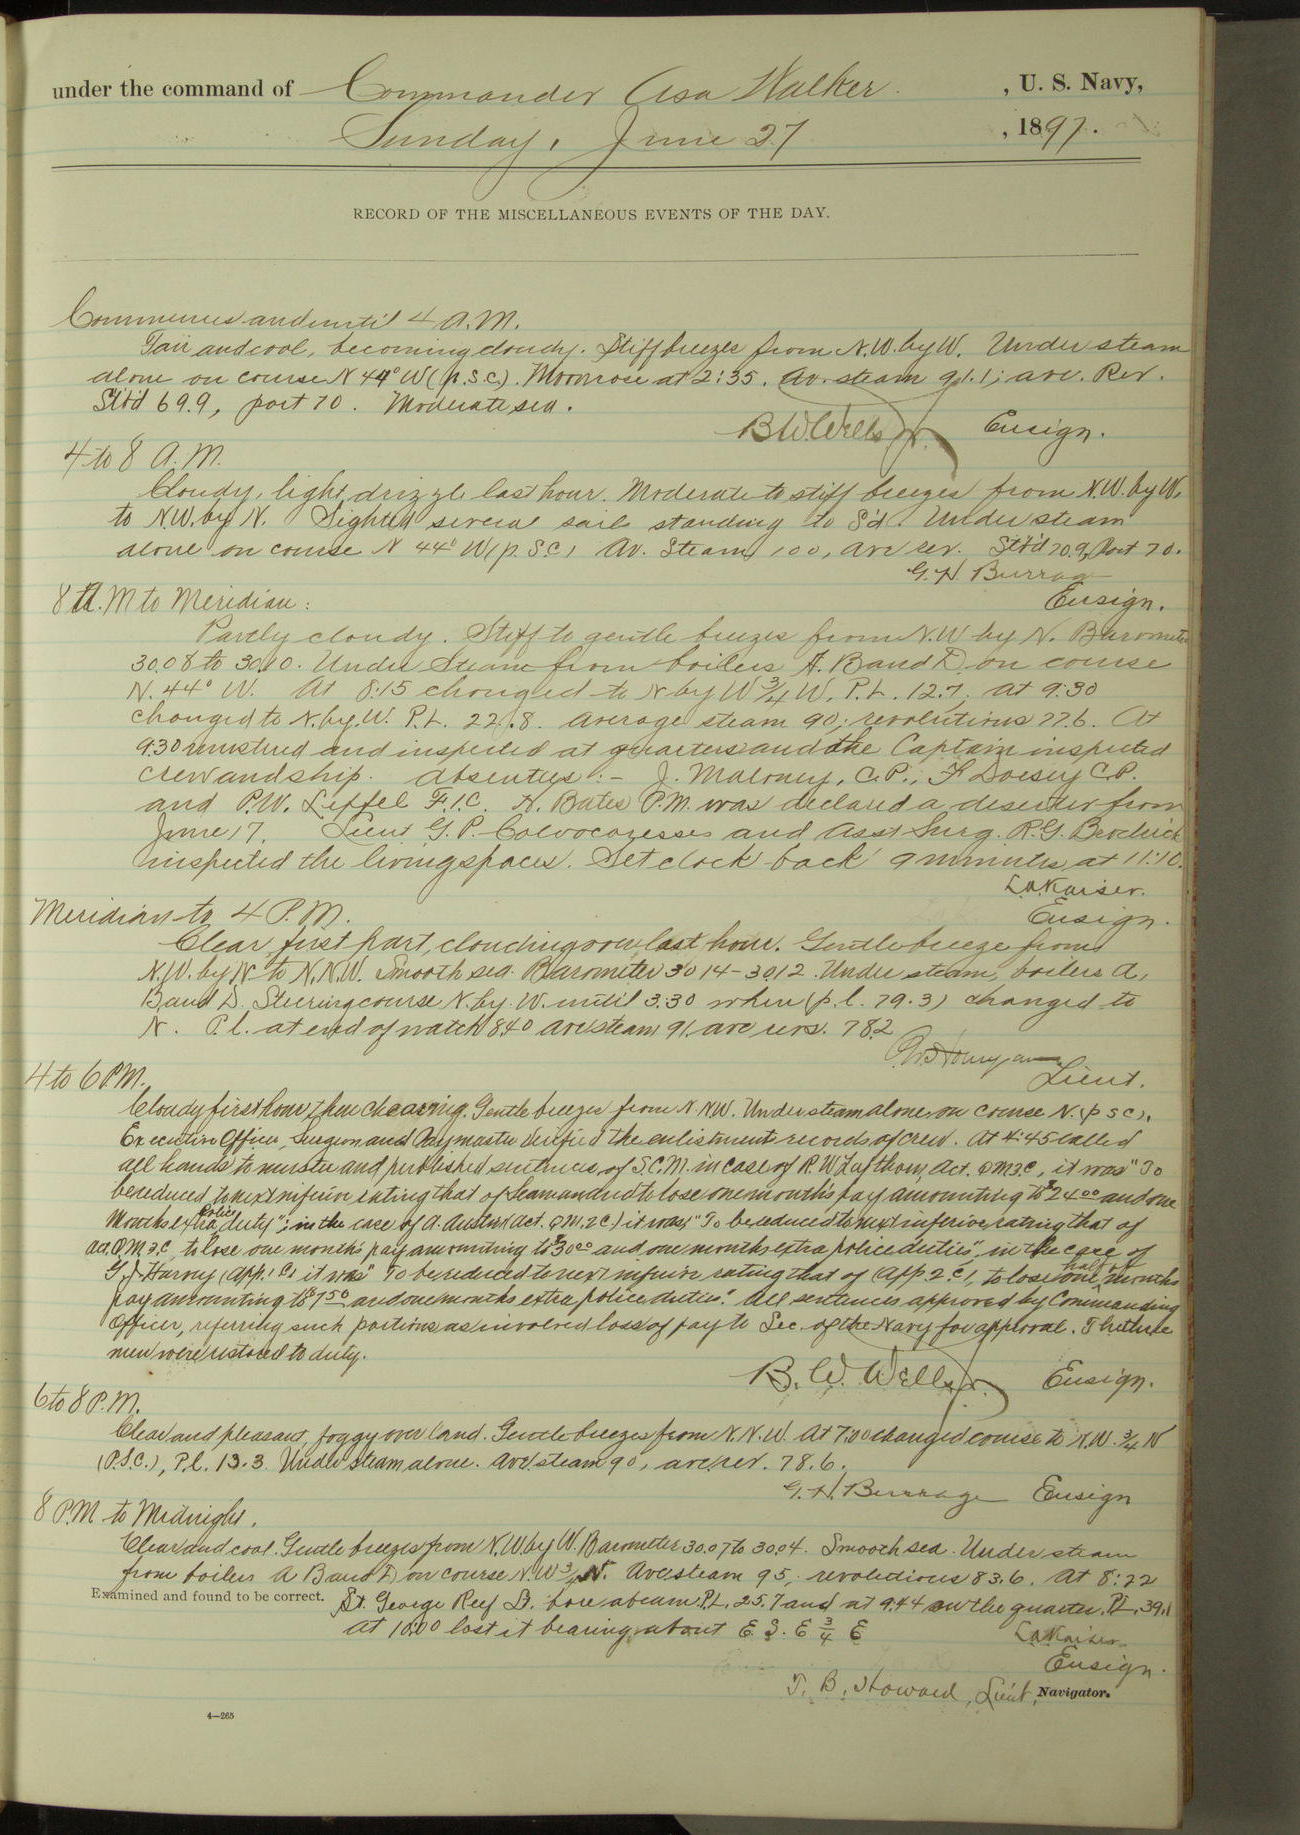 under the command of Commander Asa Walker , U. S. Navy,
Sunday, June 27 , 1897.
RECORD OF THE MISCELLANEOUS EVENTS OF THE DAY.
Commences and until 4 A.M.
Fair and cool, becoming cloudy. Stiff breezes from N.W. by W. Under steam
alone on course N 44° W (p.s.c.). Moon rose at 2:35. Av. steam 91.1; ave. Rev.
Stb'd 69.9, port 70. Moderate sea.
B.W. Wells Jr. Ensign.
4 to 8 A.M.
Cloudy, light drizzle last hour. Moderate to stiff breezes from N.W. by W.
to N.W. by N. Sighted several sails standing to S'd. Under steam
alone on course N 44° W (p.s.c.) Av. Steam 100, ave rev. Stb'd 70.9, Port 70.
G. H. Burrage
Ensign.
8 A.M to Meridian:
Partly cloudy. Stiff to gentle breezes from N.W by N. Barometer
30.08 to 30.10. Under Steam from boilers A. B and D. on course
N. 44° W. At 8:15 changed to N by W 3/4 W. P.L. 12.7, at 9:30
changed to N. by. W. P.L. 22.8. Average steam 90; revolutions 77.6. At
9:30 mustered and inspected at quarters and the Captain inspected
crew and ship. Absentees:- J. Maloney, C.P., F. Dorsey C.P.
and P.W. Leffel F.1.C. H. Bates P.M. was declared a deserter from
June 17. Lieut G.P. Colvocoresses and Asst Surg. R.G. Brodrick
inspected the living spaces. Set clock back 9 minutes at 11:10.
L.A. Kaiser.
Ensign.
Meridian to 4 P.M.
Clear first part, clouding over last hour. Gentle breeze from
N.W. by N to N.N.W. Smooth sea. Barometer 30 14-30.12. Under steam, boilers A,
B and D. Steering course N. by. W. until 3.30 when (p.l. 79.3) changed to
N. P.l. at end of watch 84.0 Ave steam 91, ave revs. 78.2
Lieut.
4 to 6 P.M.
Cloudy first hour, then clearing. Gentle breezes from N.NW. Under steam alone on course N. (p s c).
Executive Officer, Surgeon and Paymaster verified the enlistment records of crew. At 4:45 called
all hands to muster and published sentences of S.C.M. in case of R.W. Act. Q M 3.c, it was "To
be reduced to next inferior rating that of Seaman and to lose one month's pay amounting to $24.00 and one
month's extra police duty"; in the case of A. Austin (Act. Q.M. 2c) it was "To be reduced to next inferior rating that of
Act. Q.M. 3.c, to lose one month's pay amounting to $30.00 and one month's extra police duties", in the case of
G J. Harvey (App. 1 c) it was "To be reduced to next inferior rating that of (App. 2 c), to lose half of one month's
pay amounting to $7.50 and one month's extra police duties". All sentences approved by Commanding
Officer, referring such portions as involved loss of pay to Sec. of the Navy for approval. The three
men were restored to duty.
B. W. Wells Jr. Ensign.
6 to 8 P.M.
Clear and pleasant, foggy over land. Gentle breezes from N.N.W. At 7:00 changed course to N.W. 3/4 N
(P.S.C.), P.l. 13.3. Under steam alone. Ave. steam 90, ave. rev. 78.6.
G. H. Burrage Ensign
8 P.M. to Midnight.
Clear and cool. Gentle breezes from N.W. by W. Barometer 30.07 to 30.04. Smooth sea. Under steam
from boilers A B and D on course N.W 3/4 N. Ave steam 95, revolutions 83.6. At 8:22
Examined and found to be correct. St. George Reef Lt. bore abeam P.L. 25.7 and at 9.44 on the quarter. P.L. 39.1
At 10:00 lost it bearing about E. S. E 3/4 E
L.A. Kaiser
Ensign.
T. B. Howard, Lieut, Navigator.
4—265